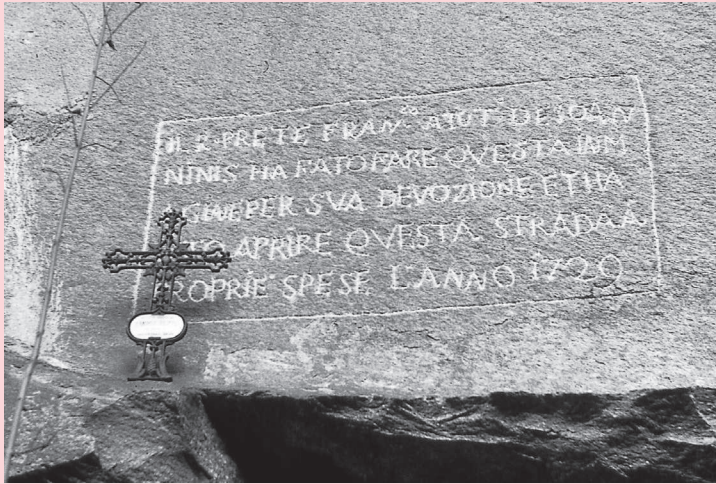 IL R. PRETE FRAN.co AIUT.e DE IOAN
NINIS HA FATO FARE QVESTA INM
AGINE PER SVA DEVOZIONE ET HA
TO APRIRE QVESTA STRADA A
PROPRIE SPESE L'ANNO 1729